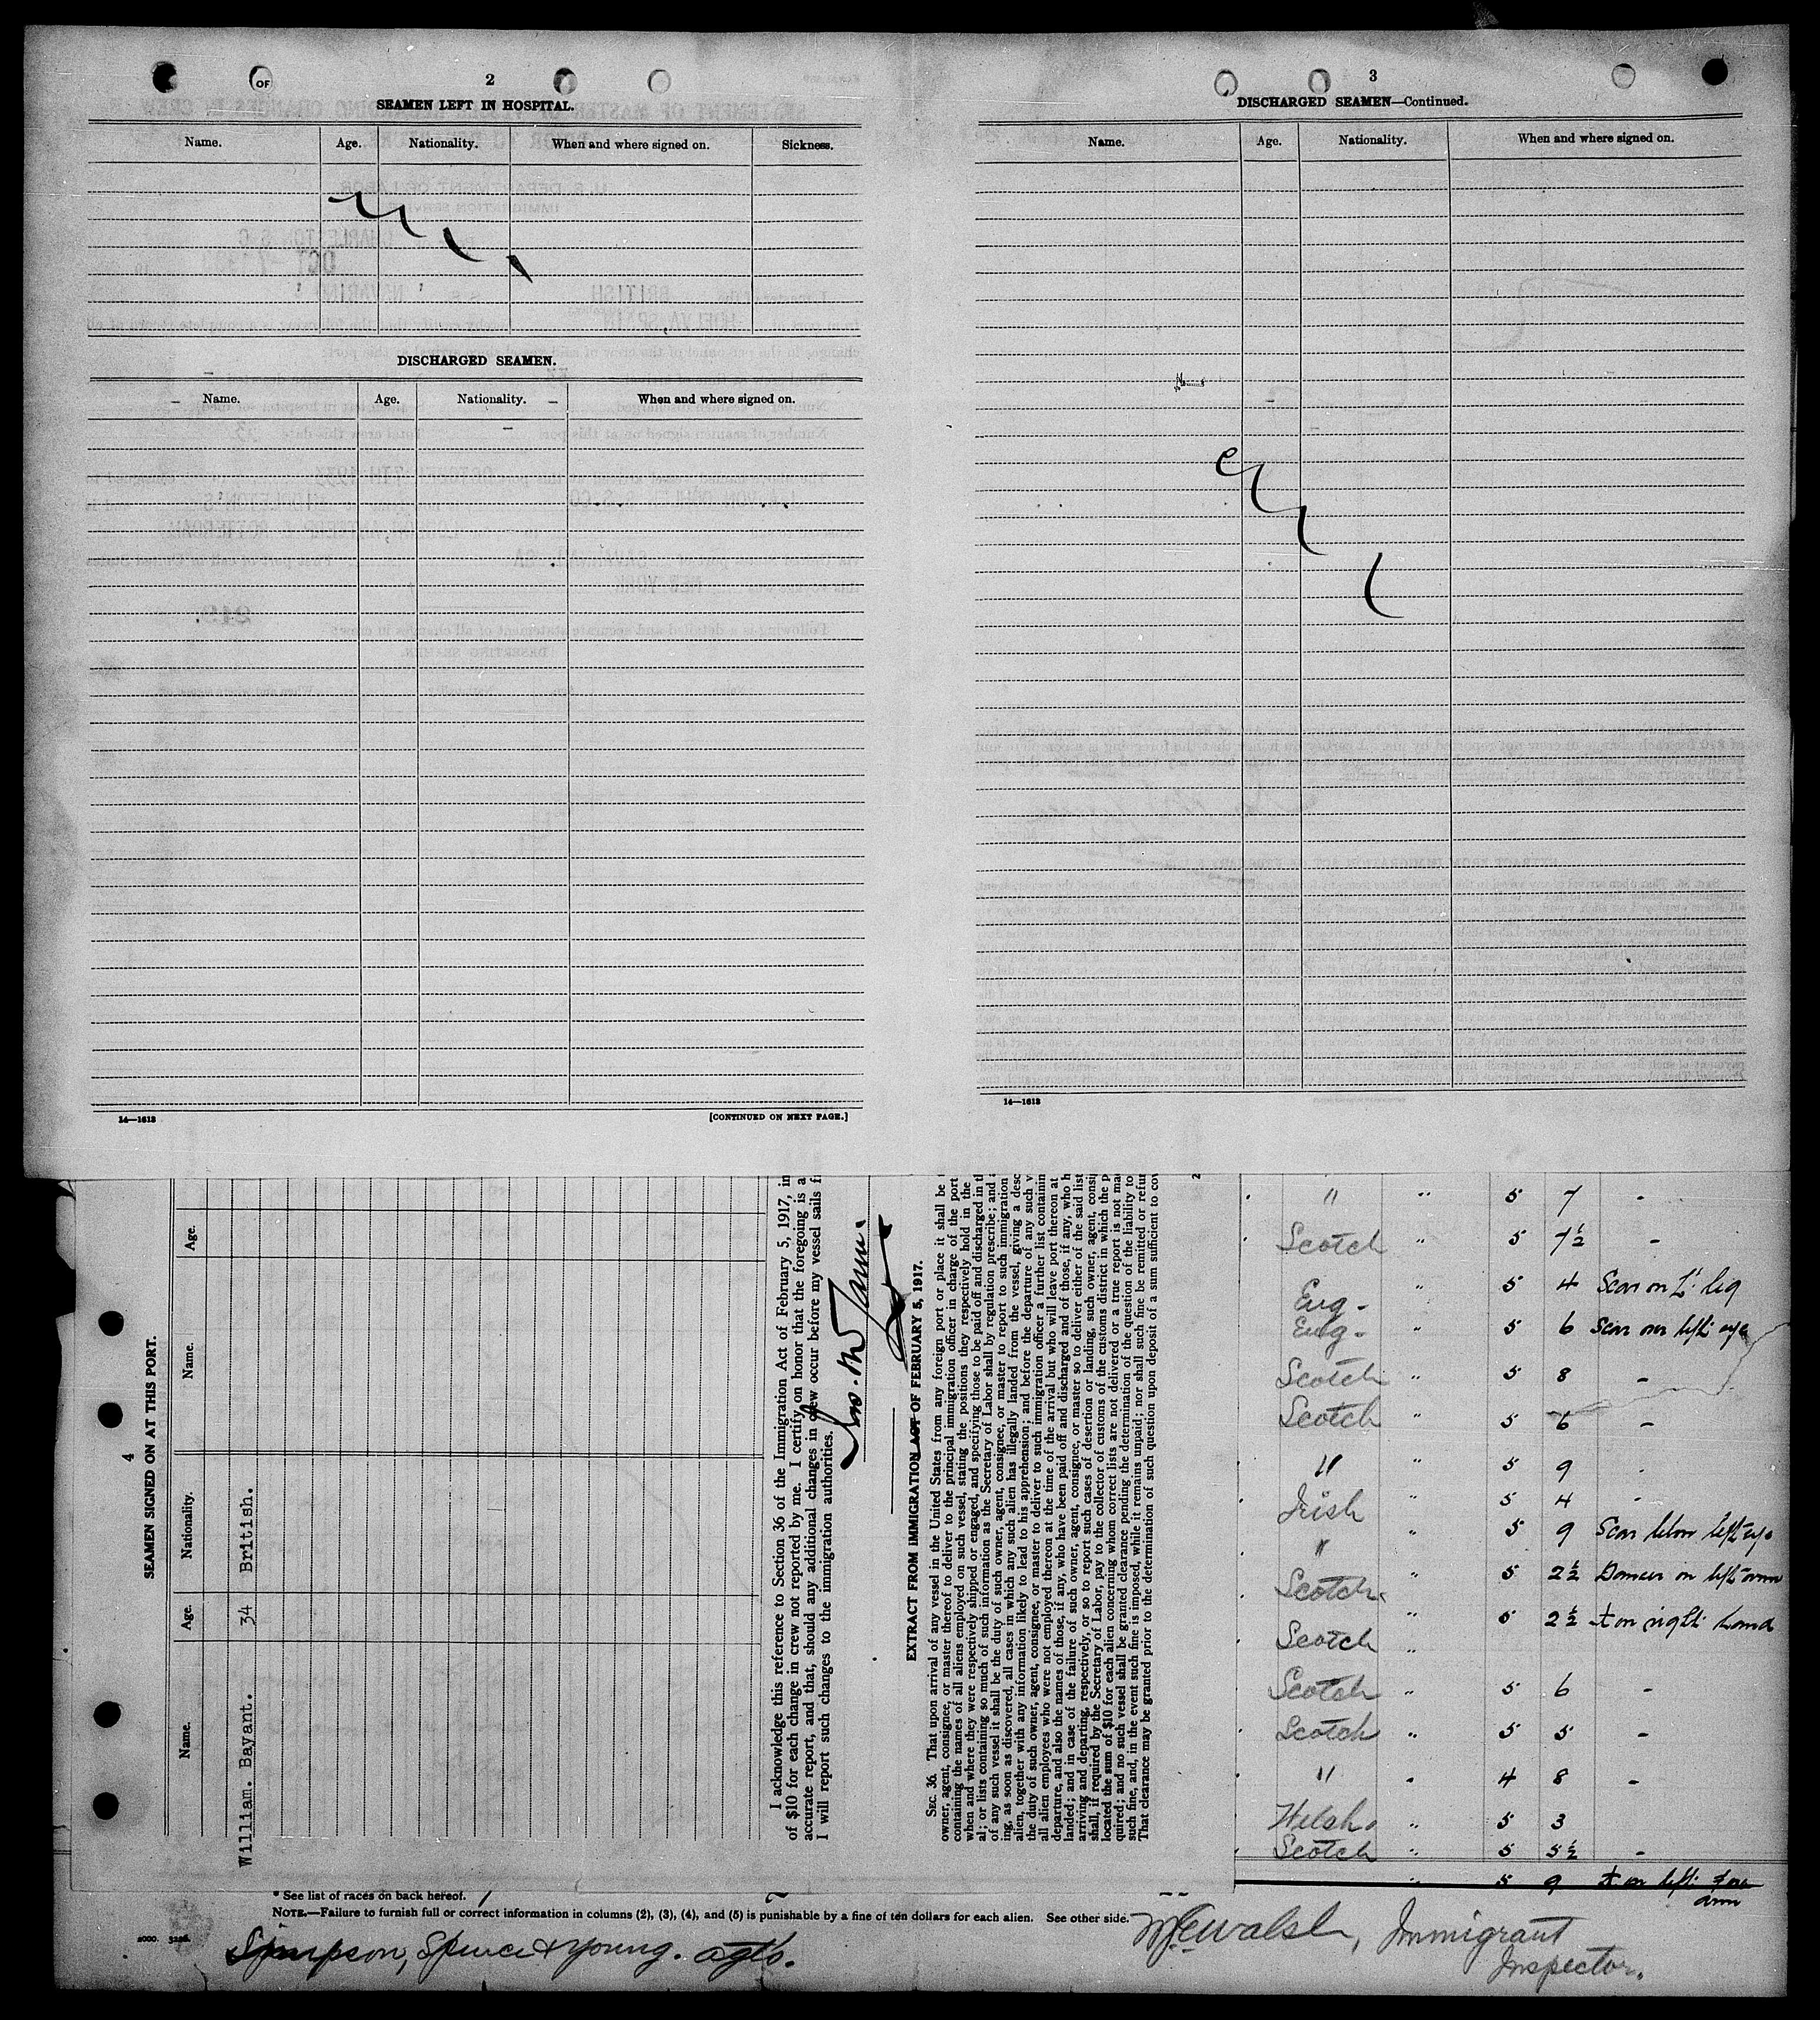 OF
2
SEAMEN LEFT IN HOSPITAL.
Name. Age. Nationality. When and where signed on. Sickness.
DISCHARGED SEAMEN.
Name. Age. Nationality. When and where signed on.
14—1613 [CONTINUED ON NEXT PAGE.]
3
DISCHARGED SEAMEN—Continued.
Name. Age. Nationality. When and where signed on.
14—1613
4
SEAMEN SIGNED ON AT THIS PORT.
Name. Age. Nationality. Name. Age.
William. Bayant. 34 British.
I acknowledge this reference to Section 36 of the Immigration Act of February 5, 1917, in
of $10 for each change in crew not reported by me. I certify on honor that the foregoing is a
accurate report, and that, should any additional changes in crew occur before my vessel sails f
I will report such changes to the immigration authorities.
EXTRACT FROM IMMIGRATION ACT OF FEBRUARY 5, 1917.
SEC. 36. That upon arrival of any vessel in the United States from any foreign port or place it shall be
owner, agent, consignee, or master thereof to deliver to the principal immigration officer in charge of the port
containing the names of all aliens employed on such vessel, stating the positions they respectively hold in the
when and where they were respectively shipped or engaged, and specifying those to be paid off and discharged in th
al; or lists containing so much of such information as the Secretary of Labor shall by regulation prescribe; and a
of any such vessel it shall be the duty of such owner, agent, consignee, or master to report to such immigration
ing, as soon as discovered, all cases in which any such alien has illegally landed from the vessel, giving a desc
alien, together with any information likely to lead to his apprehension; and before the departure of any such v
the duty of such owner, agent, consignee, or master to deliver to such immigration officer a further list containin
all alien employees who were not employed thereon at the time of the arrival but who will leave port thereon at
departure, and also the names of those, if any, who have been paid off and discharged, and of those, if any, who h
landed; and in case of the failure of such owner, agent, consignee, or master so to deliver either of the said list
arriving and departing, respectively, or so to report such cases of desertion or landing, such owner, agent, consig
shall, if required by the Secretary of Labor, pay to the collector of customs of the customs district in which the p
located the sum of $10 for each alien concerning whom correct lists are not delivered or a true report is not ma
quired; and no such vessel shall be granted clearance pending the determination of the question of the liability to
such fine, and, in the event such fine is imposed, while it remains unpaid; nor shall such fine be remitted or refun
That clearance may be granted prior to the determination of such question upon deposit of a sum sufficient to cov
2
" " 5 7 -
Scotch " 5 7½ -
Eng- " 5 4 Scar on L' leg
Eng- " 5 6 Scar over left eye
Scotch " 5 8 -
Scotch " 5 6 -
" " 5 9 -
Irish " 5 4 -
" " 5 9 Scar below left eye
Scotch " 5 2½ Dancer on left arm
Scotch " 5 2½ on right hand
Scotch " 5 6 -
Scotch " 5 5 -
" " 4 8 -
Welsh " 5 3
Scotch " 5 5½ -
" 5 9 on left fore
arm
* See list of races on back hereof.
NOTE.—Failure to furnish full or correct information in columns (2), (3), (4), and (5) is punishable by a fine of ten dollars for each alien. See other side.
Simpson, Spence & Young. agts.
Walsh, Immigrant
Inspector.